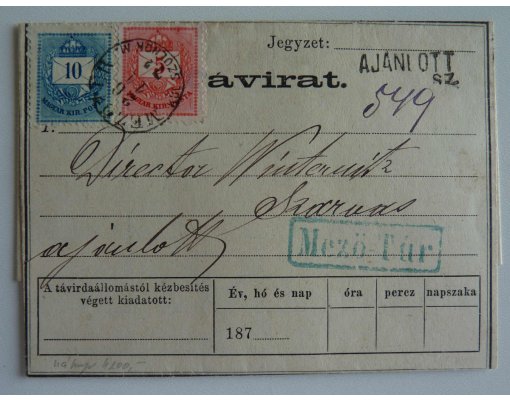 Jegyzet:
AJÁNLOTT
SZ.
10
5
MAGYAR KIR. POSTA
ávirat.
549
Director Winternitz
Szarvas
ajánlott
Mező-Túr
A távirdaállomástól kézbesítés
végett kiadatott:
Év, hó és nap
óra
percz
napszaka
187